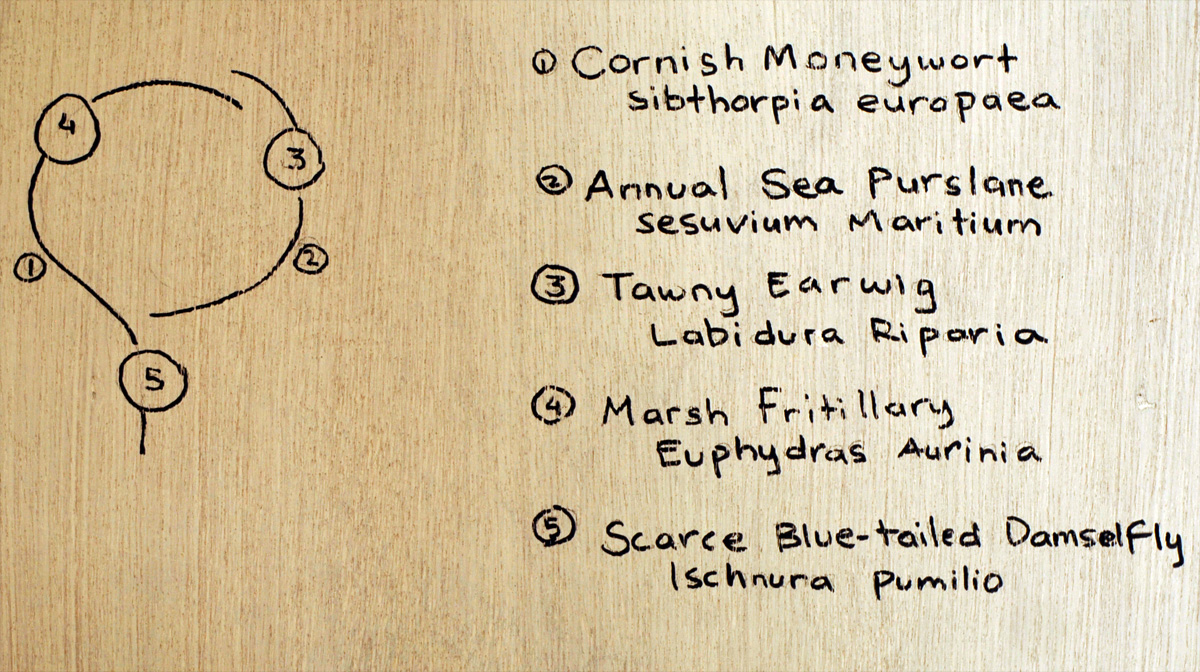 4
3
1
2
5
① Cornish Moneywort
sibthorpia europaea
② Annual Sea Purslane
sesuvium Maritium
③ Tawny Earwig
Labidura Riparia
④ Marsh Fritillary
Euphydras Aurinia
⑤ Scarce Blue-tailed Damselfly
Ischnura pumilio